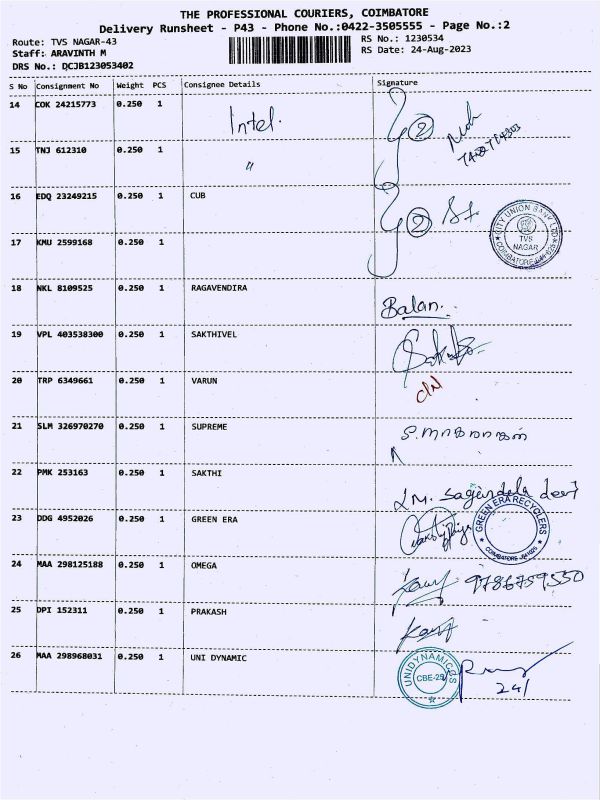 THE PROFESSIONAL COURIERS, COIMBATORE
Delivery Runsheet - P43 - Phone No.:0422-3505555 - Page No.:2
Route: TVS NAGAR-43
RS No.: 1230534
Staff: ARAVINTH M
RS Date: 24-Aug-2023
DRS No.: DCJB123053402
S No Consignment No Weight PCS Consignee Details Signature
14 COK 24215773 0.250 1 Intel. 2
15 TNJ 612310 0.250 1 "
16 EDQ 23249215 0.250 1 CUB 2
CITY UNION BANK LTD
TVS
NAGAR
17 KMU 2599168 0.250 1
18 NKL 8109525 0.250 1 RAGAVENDIRA
Balan.
19 VPL 403538300 0.250 1 SAKTHIVEL
20 TRP 6349661 0.250 1 VARUN
21 SLM 326970270 0.250 1 SUPREME
22 PMK 253163 0.250 1 SAKTHI
23 DDG 4952026 0.250 1 GREEN ERA
GREEN ERA RECYCLERS
24 MAA 298125188 0.250 1 OMEGA
9786759550
25 DPI 152311 0.250 1 PRAKASH
26 MAA 298968031 0.250 1 UNI DYNAMIC
UNIDYNAMICSS
CBE-29
24/